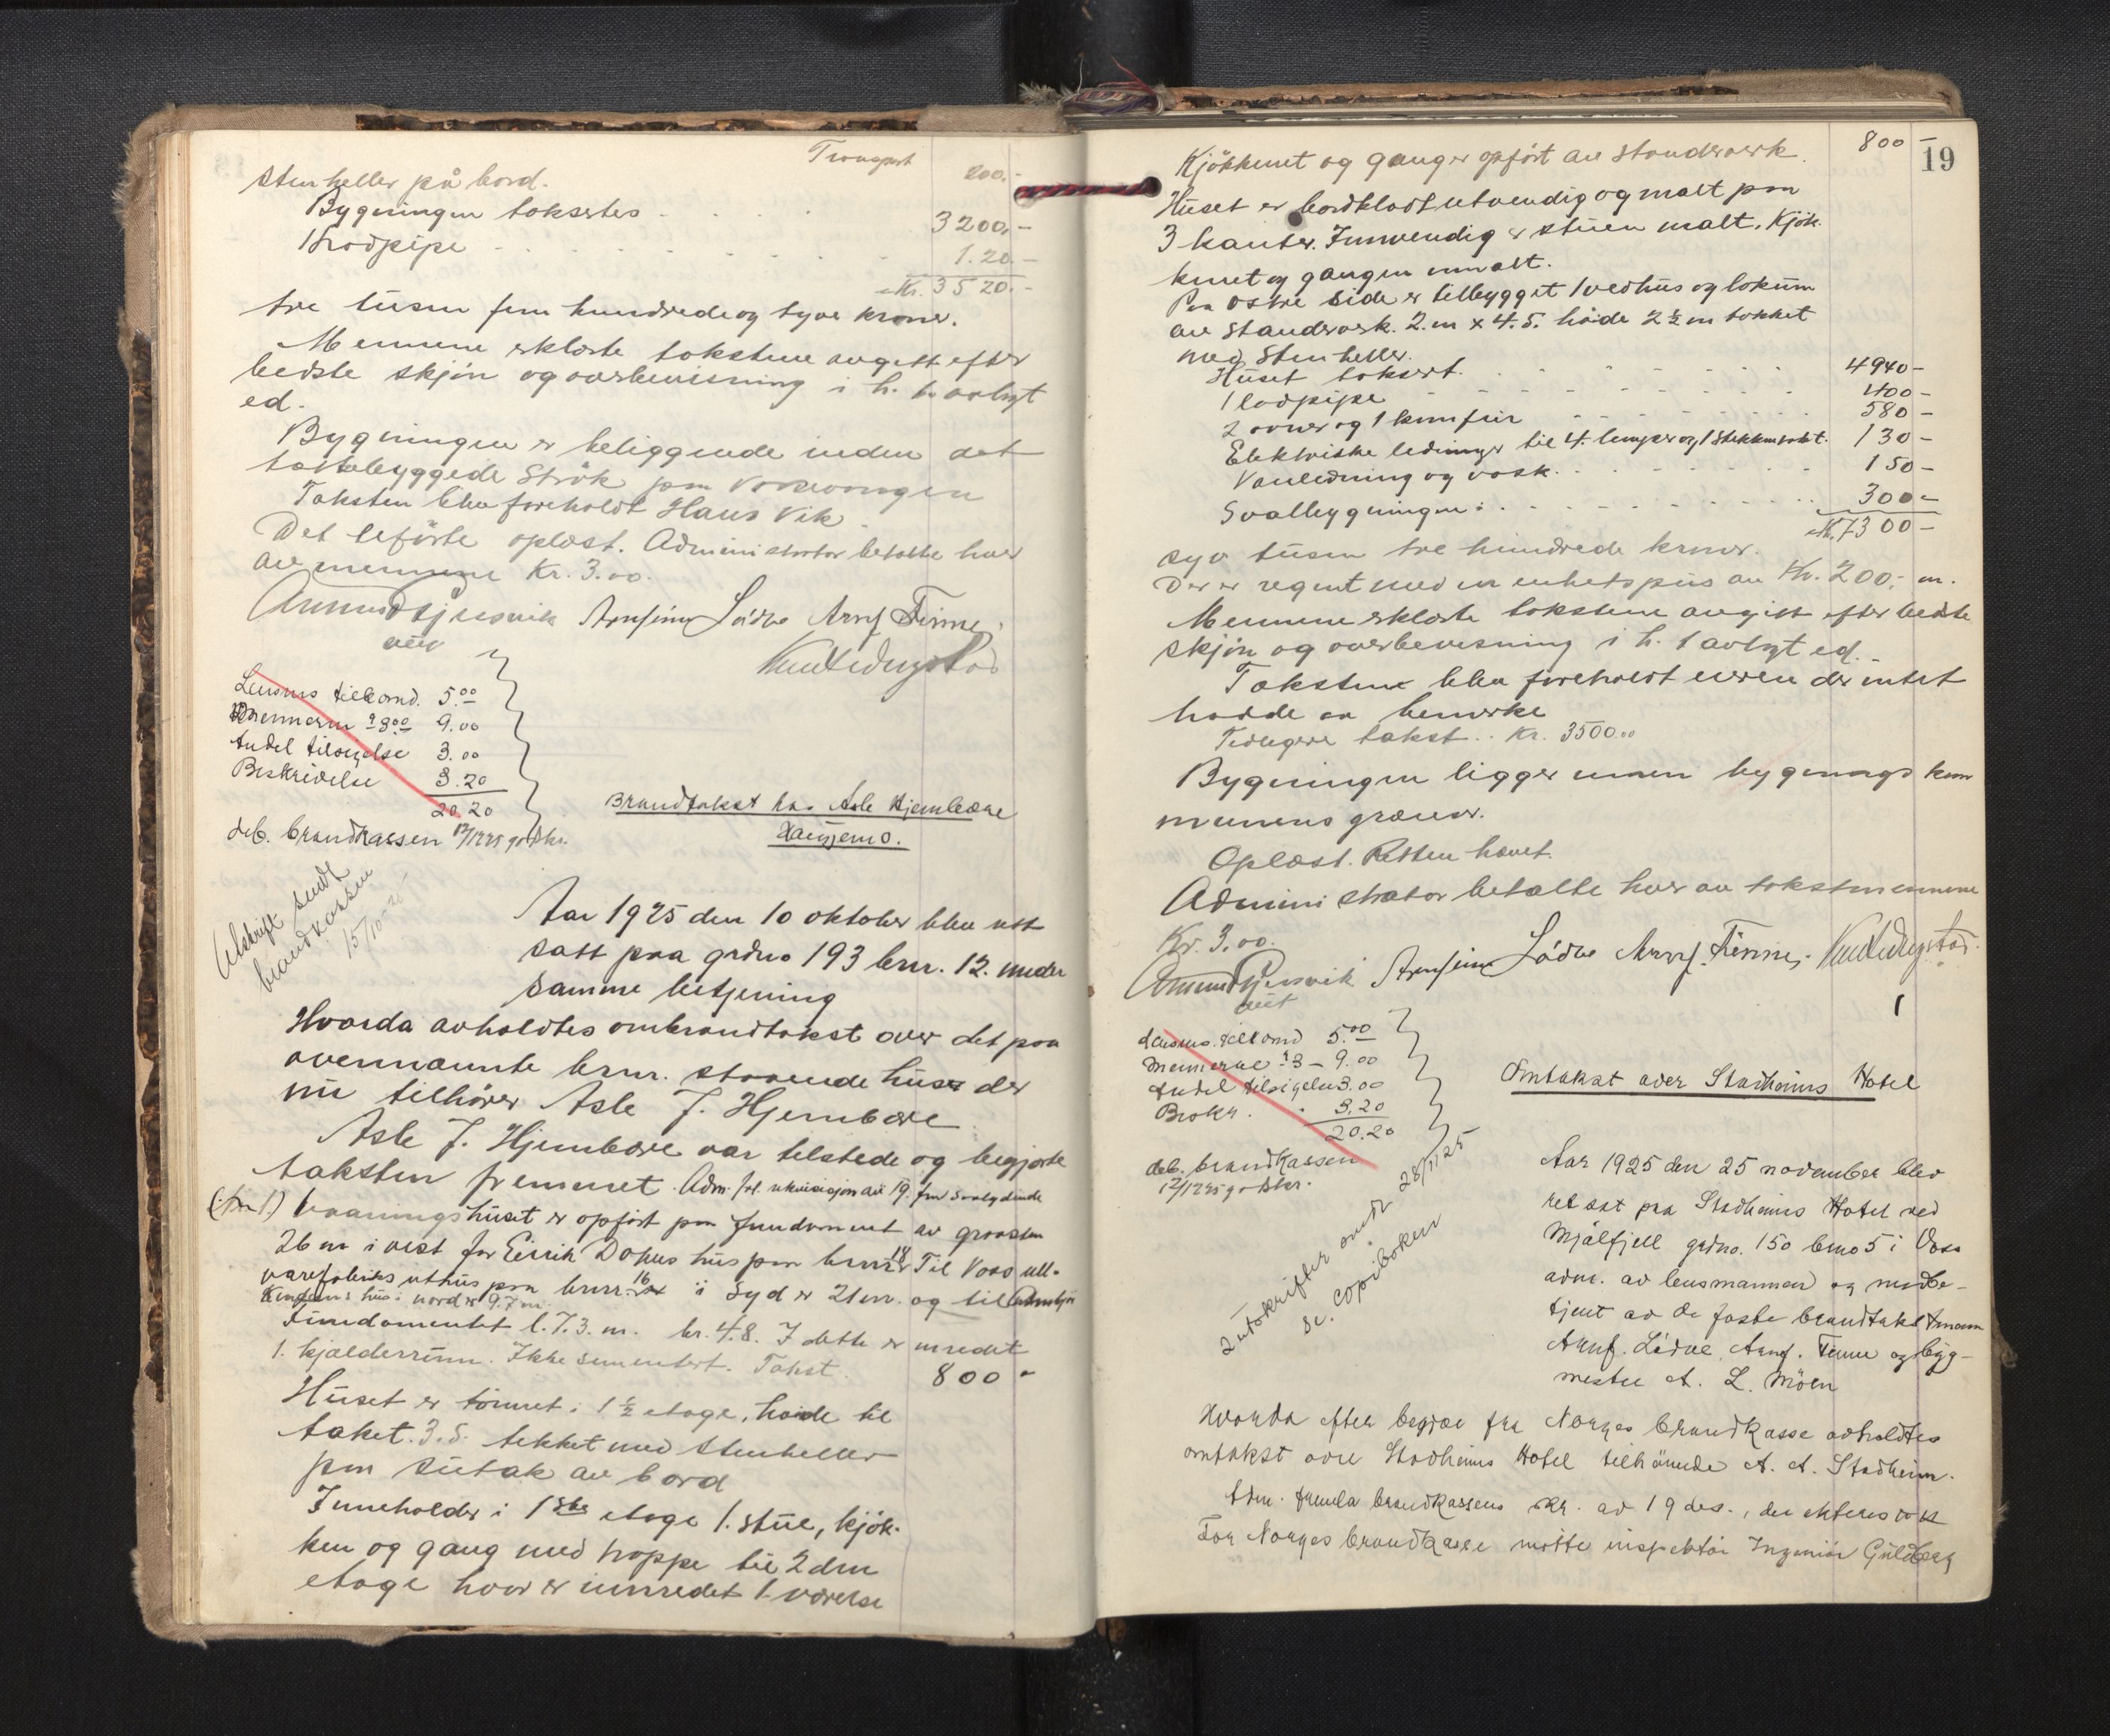 Transport 200.-
Stenheller på bord.
Bygningen takseres 3200.-
1 brodpipe 1.20.-
Kr. 3520.-
tre tusen fem hundrede og tyve kroner.
Mennene erklærte takstene avgitt efter
bedste skjön og overbevisning i h. t. avlagt
ed.
Bygningen er beliggende inden det
tættebyggede Strök paa Vossevangen
Taksten blev foreholdt Hans Vik.
Det tilförte oplæst. Administrator betalte hver
av mennene Kr. 3.00.
Arnfinn Lödve Arnf Finne,
Lensms tilkomd. 5.00
Mennerne 3.00 9.00
Andel tilsigelse 3.00
Beskrivelse 3.20
20.20
deb. brandkassen 12/12 25
Brandtakst hos Asle Hjembære
Haugjemo.
Utskrift sendt
brandkassen
15/10-25
Aar 1925 den 10 oktober blev rett
satt paa grdno 193 brnr. 12. under
samme betjening
Hvorda avholdtes ombrandtakst over det paa
ovennævnte brnr. staaende huset der
nu tilhörer Asle J. Hjembære
Asle J. Hjembære var tilstede og begjærte
taksten fremmet. Adm. frl. rekvisisjon av 19. frm saalydende
(No 1.) Vaaningshuset er opfört paa fundament av graasten
26 m i vest for Eirik Dokens hus paa brnr 18 Til Voss ull-
varefabriks uthus paa brnr. 16 i Syd er 21 m. og til
hus i nord er 9.7 m.
Fundamentet l. 7.3. m. br. 4.8. I dette er inredet
1. kjælderrum. Ikke sementert. Takst. 800 -
Huset er tömret i 1 ½ etage, höide til
taket. 3.5. tekket med Stenheller
paa sutak av bord
Inneholder i 1ste etage 1. stue, kjök-
ken og gang med trappe til 2den
etage hvor er innredet 1 værelse
19
800 -
Kjökkenet og ganger opfört av standerverk.
Huset er bordklædt utvendig og malt paa
3 kanter. Innvendig er stuen malt. Kjök-
kenet og gangen umalt.
Paa östre side er tilbygget 1 vedhus og lokum
av standerverk. 2. m x 4.5. höide 2 ½ m tækket
med Stenheller.
Huset taksert. 4940-
1 lodpipe 400-
2 ovner og 1 komfur 580-
Elektriske ledninger til 4. lamper og 1 stikkontakt. 130-
Vanledning og vask. 150-
Svalbygningen: 300-
Kr. 7300-
syv tusen tre hundrede kroner.
Der er regnet med en enhetspris av Kr. 200.- m.
Mennene erklærte takstene avgitt efter bedste
skjön og overbevisning i h. t avlagt ed.
Takstene blev foreholdt eieren der intet
hadde at bemerke
Tidligere takst.. Kr. 3500.00
Bygningen ligger innen bygningskom
munens grænser.
Oplæst. Retten hævet.
Administrator betalte hver av takstmennene
Kr. 3.00.
Arnfinn Lödve Arnf. Finne,
Lensms. tilkomd 5.00
Mennerne 3 - 9.00
Andel tilsigelse 3.00
Beskr. 3.20
20.20
deb. brandkassen
12/12 25
2 utskrifter sendt 28/11 25
se. Copiboken
Omtakst over Stadheims Hotel
Aar 1925 den 25 november blev
ret sat paa Stadheims Hotel ved
Mjölfjell grdno. 150 brno 5 i Voss
adm. av lensmannen og medbe-
tjent av de faste brandtakstmenn
Arnf. Lödve, Arnf. Finne og byg-
mester A. L. Möen
Hvorda efter begjær fra Norges brandkasse avholdtes
omtakst over Stadheims Hotel tilhörende A. A. Stadheim.
Adm. fremla brandkassens skr. av 19 ds., der
For Norges brandkasse mötte inspektör Ingeniör Guldberg